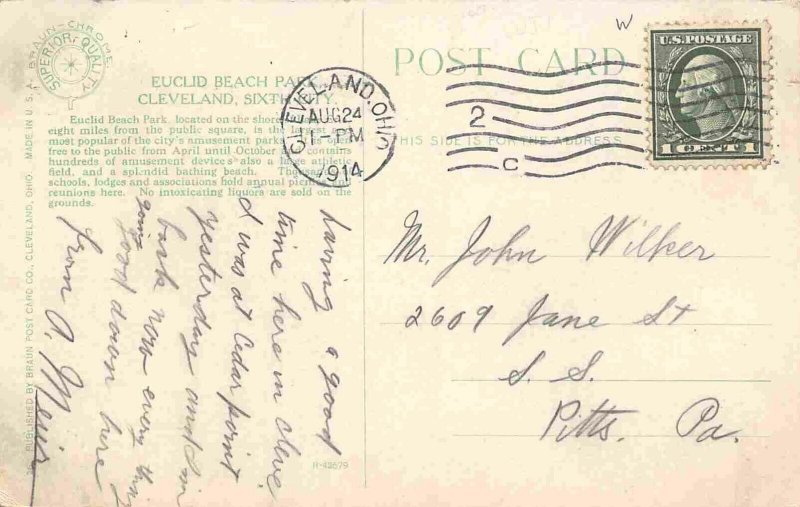 BRAUN-CHROME
SUPERIOR QUALITY
MADE IN U.S.A.
POST CARD
EUCLID BEACH PARK,
CLEVELAND, SIXTH CITY.
Euclid Beach Park, located on the shore
eight miles from the public square, is the largest and
most popular of the city's amusement parks. It is open
free to the public from April until October and contains
hundreds of amusement devices also a large athletic
field, and a splendid bathing beach. Thousands
schools, lodges and associations hold annual picnics and
reunions here. No intoxicating liquors are sold on the
grounds.
THIS SIDE IS FOR THE ADDRESS
CLEVELAND, OHIO
AUG 24
PM
1914
2
C
W
U.S. POSTAGE
1 CENT 1
having a good
time here in Cleve
d was at Cedar point
yesterday and Im
back now every thing
going
good down here
from A. Meiir
Mr. John Wilker
2609 Jane St
S. S.
Pitts. Pa.
PUBLISHED BY BRAUN POST CARD CO., CLEVELAND, OHIO.
R-42679